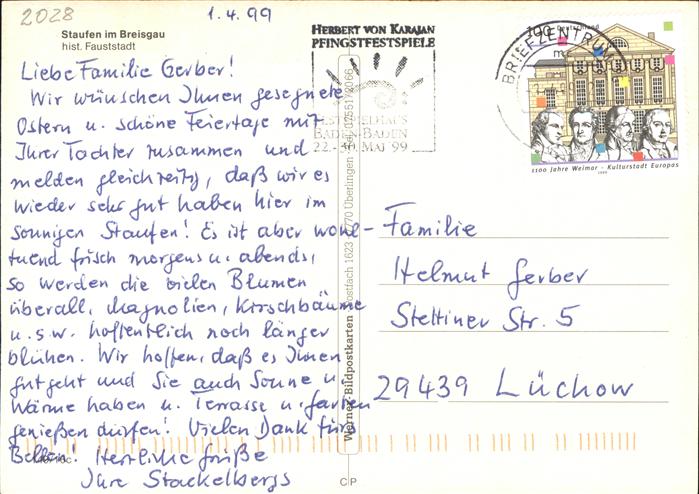 2028
1.4.99
Staufen im Breisgau
hist. Fauststadt
Liebe Familie Gerber!
Wir wünschen Ihnen gesegnete
Ostern u. schöne Feiertage mit
Ihrer Tochter zusammen und
melden gleichzeitig, daß wir es
wieder sehr gut haben hier im
sonnigen Staufen! Es ist aber wohl-
tuend frisch morgens u. abends,
so werden die vielen Blumen
überall, Magnolien, Kirschbäume
u.s.w. hoffentlich noch länger
blühen. Wir hoffen, daß es Ihnen
gut geht und Sie auch Sonne u.
Wärme haben u. Terrasse u. Garten
genießen dürfen! Vielen Dank für
Herzliche Grüße
Ihre Stackelbergs
HERBERT VON KARAJAN
PFINGSTFESTSPIELE
FESTSPIELHAUS
BADEN-BADEN
22.-30. MAI 99
BRIEFZENTRUM
100 Deutschland
1100 Jahre Weimar - Kulturstadt Europas
1999
Familie
Helmut Gerber
Stettiner Str. 5
29439 Lüchow
Werner Bildpostkarten Postfach 1623 Überlingen
C P